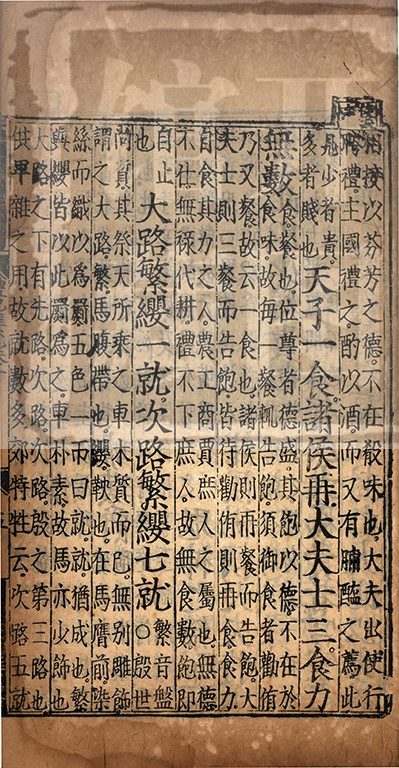 相接以芬芳之德不在殽味也大夫出使行
聘禮主國禮之酌以酒而又有脯醢之薦此
見少者貴
多者賤也
天子一食諸侯再大夫士三食力
無數
食餐也位尊者德盛其飽以德不在於
食味故每一餐輒告飽須御食者勸侑
乃又餐故云一食也諸侯則再餐而告飽大
夫士則三餐而告飽皆待勸侑則再食食力
自食其力之人農工商賈庶人之屬也無德
不仕無祿代耕禮不下庶人故無食數飽即
自止
也
大路繁纓一就次路繁纓七就
繁音盤
○殷世
尚質其祭天所乘之車木質而已無別雕飾
謂之大路繁馬腹帶也纓鞅也在馬膺前染
絲而織以爲罽五色一帀曰就就猶成也繁
與纓皆以此罽爲之車朴素故馬亦少飾也
大路之下有先路次路次路殷之第三路也
供卑雜之用故就數多郊特牲云次路五就